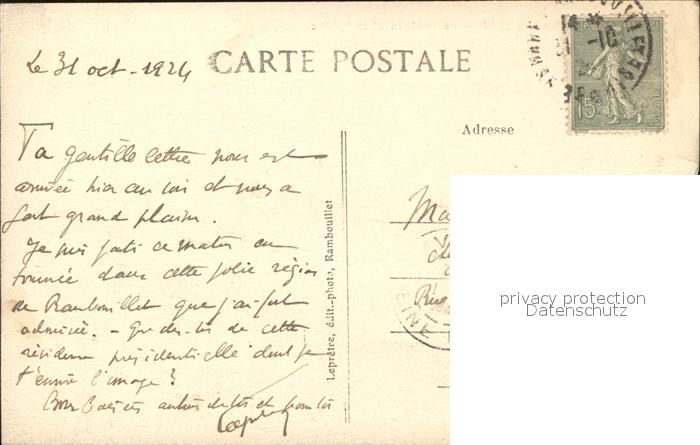 Le 31 oct - 1924
CARTE POSTALE
15
Adresse
Ta gentille lettre nous est
arrivée hier au soir et nous a
fait grand plaisir.
Je suis parti ce matin en
tournée dans cette jolie région
de Rambouillet que j'ai fort
admirée. - Que dis-tu de cette
résidence présidentielle dont je
t'envoie l'image ?
Bons Baisers
Leprêtre, édit.-photo, Rambouillet
Ma
Rue
privacy protection
Datenschutz